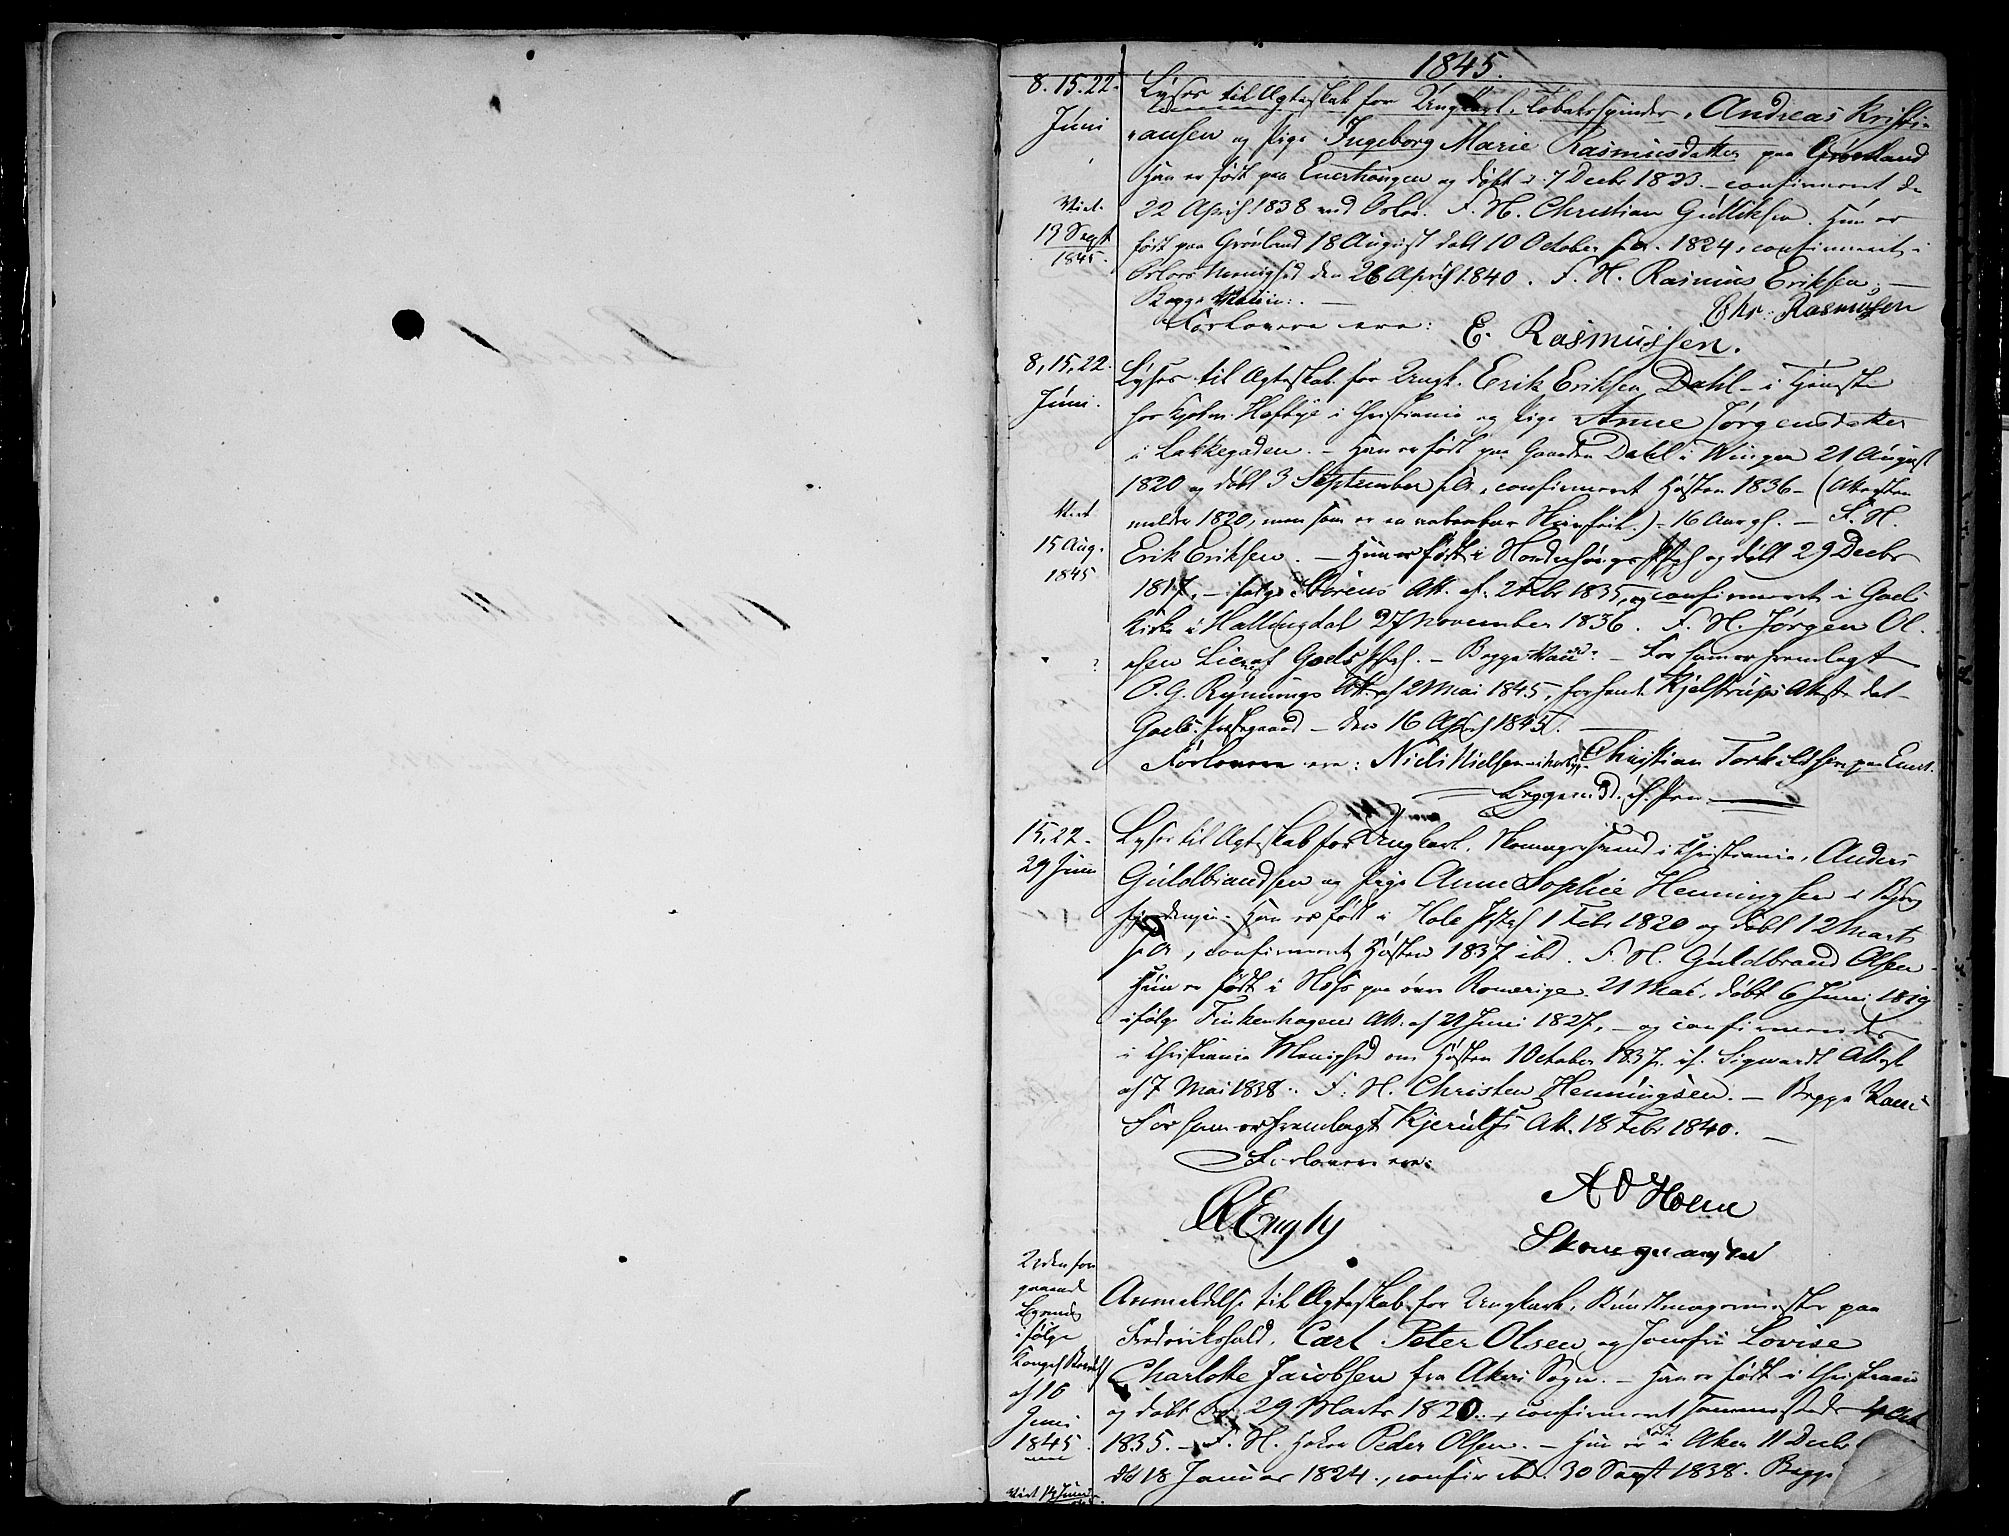 1845.
8. 15. 22.
Juni
Lyses til Ægteskab for Ungkarl, Tobaksspinder, Andreas Kristi-
ansen og Pige Ingeborg Marie Rasmusdatter paa Grønland
Han er født paa Enerhougen og døbt d. 7 Decbr 1823. – confirmeret d.
Viet
19 Sept
1845.
22 April 1838 ved Oslo. F. N. Christian Gulliksen. Hun er
født paa Grønland 18 August døbt 10 October s. A. 1824, confirmeret i
Oslos Menighed den 26 April 1840. F. N. Rasmus Eriksen, –
Begge Vacc: –
Forlovere ere: Chr. Rasmussen
E. Rasmussen.
8, 15, 22.
Juni.
Lyses til Ægteskab for Ungk. Erik Eriksen Dahl – i Tjeneste
hos Heftye i Christiania og Pige Anne Jørgensdatter
i Lakkegaden. – Han er født paa Gaarden Dahl i Winger 21 August
1820 og døbt 3 September s. A., confirmeret Høsten 1836 – (Attesten
Viet
15 Aug.
1845
melder 1820, men som er en aabenbar Skrivfeil.) – 16 Aar gl. – F. N.
Erik Eriksen. – Hun er født i Norderhougs Prstgj og døbt 29 Decbr
1817, – ifølge Att. af 2 Febr 1835, og confirmeret i Goels
Kirke i Hallingdal 27 November 1836. F. N. Jørgen Ol-
sen Lie af Goels Prstgj. – Begge Vacc: – For ham er fremlagt
O. G. Rynnings Att. af 2 Mai 1845, for hende Kjelstrups Attest dat.
Goels Præstegaard – den 16 April 1845. –
Forlovere ere: Niels Nielsen Christian Torkildsen paa Ener-
15. 22.
29 Juni
Lyses til Ægteskab for Ungkarl, Skomagersvend i Christiania, Anders
Guldbrandsen og Pige Anne Sophie Henningsen i
Han er født i Hole Prstgj 1 Febr 1820 og døbt 12 Marts
s. A., confirmeret Høsten 1837 ibd. F. N. Guldbrand Olsen –
Hun er født i Næs paa øvre Romerige 21 Mai, døbt 6 Juni 1819
ifølge Finkenhagens Att. af 21 Juni 1827, – og confirmeret
i Christiania Menighed om Høsten 1 October 1837 if. Sigwardt Attest
af 7 Mai 1838. F. N. Christen Henningsen. – Begge Vacc:
For ham er fremlagt Kjerulfs Att. 18 Febr 1840. –
Forlovere ere:
A O Holm
Uden for-
gaaende
Lysning
ifølge
Kongel. Bevill.
af 16
Juni
1845
Anmeldelse til Ægteskab for Ungkarl, Bundtmagermester paa
Frederikshald, Carl Peter Olsen og Jomfru Lovise
Charlotte Jacobsen fra Akers Sogn. – Han er født i Christiania
og døbt 29 Marts 1820, confirmeret sammesteds 4 Oct
1835. – F. N. Peder Olsen. – Hun er født i Aker 11 Decbr
døbt 18 Januar 1824, confir. ibd. 30 Sept 1838. Begge
Viet 19 Juni